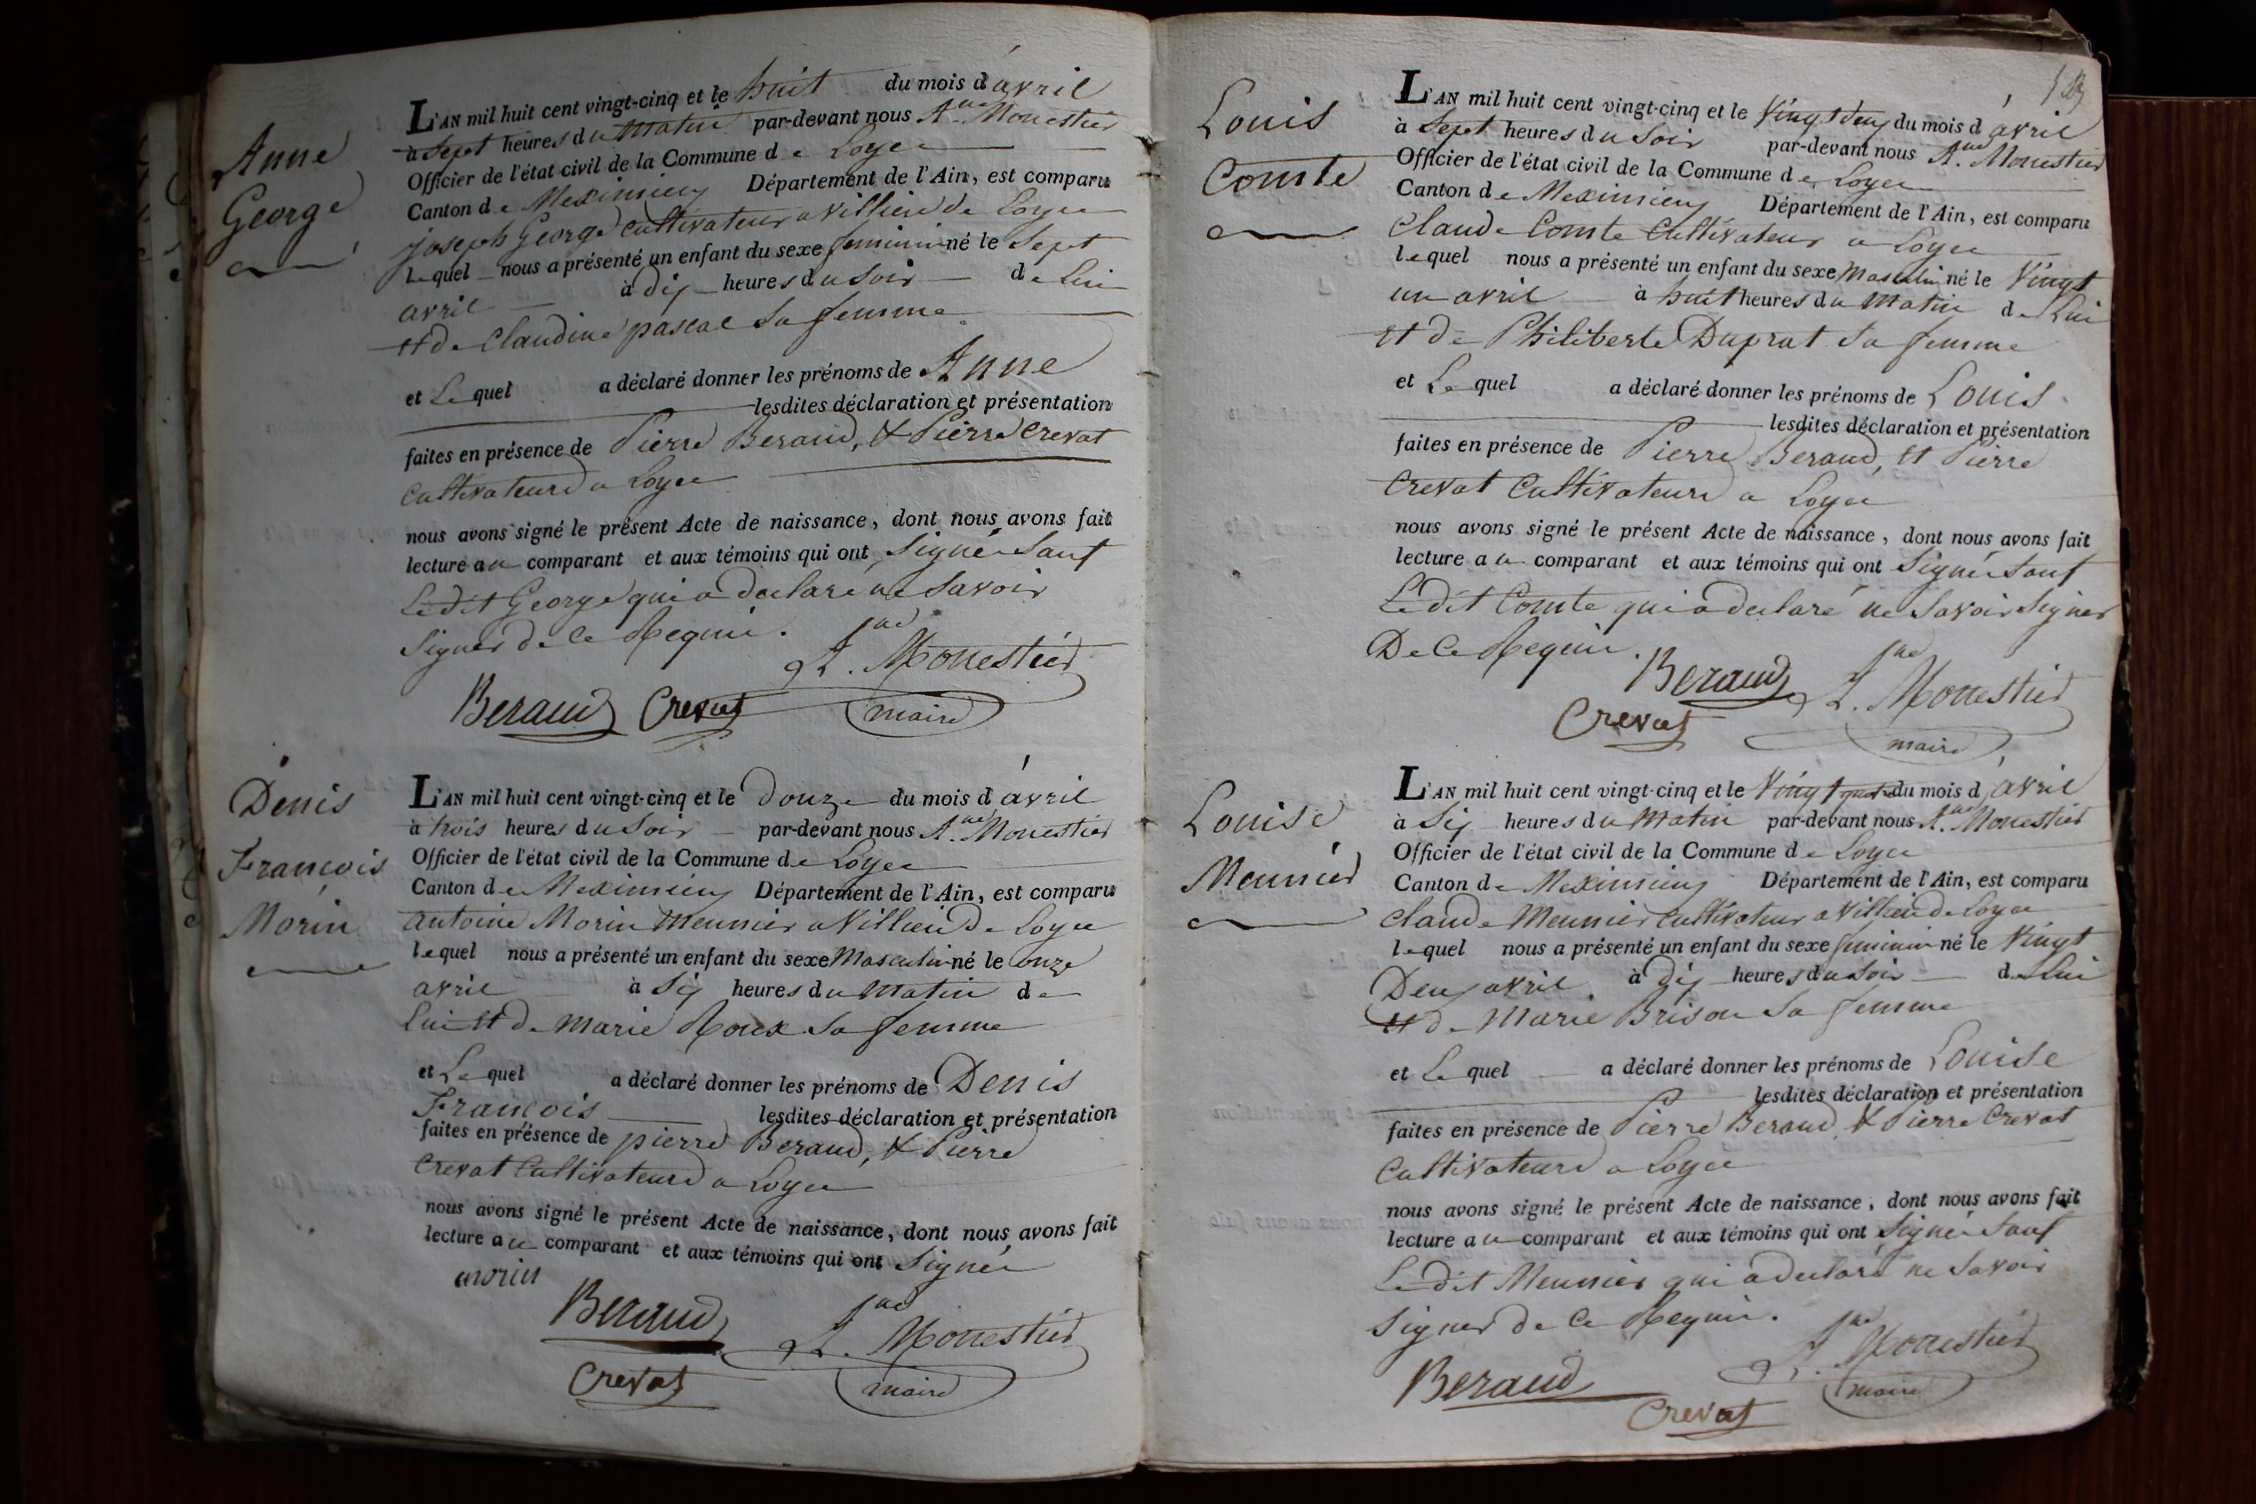 Anne
George
L'AN mil huit cent vingt-cinq et le huit du mois d'avril
à Sept heures du Matin par-devant nous A.ne Monestier
Officier de l'état civil de la Commune de Loyes
Canton de Meximieux Département de l'Ain, est comparu
joseph George cultivateur a Villieu de Loyes
lequel nous a présenté un enfant du sexe feminin né le Sept
avril à dix heures du Soir de Lui
et de Claudine pascal Sa femme
et Lequel a déclaré donner les prénoms de Anne
lesdites déclaration et présentation
faites en présence de Pierre Beraud, & Pierre Crevat
Cultivateurs a Loyes
nous avons signé le présent Acte de naissance, dont nous avons fait
lecture au comparant et aux témoins qui ont Signé Sauf
Ledit George qui a declaré ne Savoir
Signer de ce Requis.
A.ne Monestier
Beraud Crevat maire
Denis
Francois
Morin
L'AN mil huit cent vingt-cinq et le Douze du mois d'avril
à trois heures du Soir par-devant nous A.ne Monestier
Officier de l'état civil de la Commune de Loyes
Canton de Meximieux Département de l'Ain, est comparu
antoine Morin Meunier a Villieu de Loyes
lequel nous a présenté un enfant du sexe Masculin né le onze
avril à Six heures du Matin de
Lui et de Marie Roux Sa femme
et Lequel a déclaré donner les prénoms de Denis
Francois lesdites déclaration et présentation
faites en présence de pierre Beraud, & Pierre
Crevat Cultivateurs a Loyes
nous avons signé le présent Acte de naissance, dont nous avons fait
lecture au comparant et aux témoins qui ont Signé
morin
Beraud A.ne Monestier
Crevat maire
Louis
Comte
L'AN mil huit cent vingt-cinq et le Vingt deux du mois d'avril
à Sept heures du Soir par-devant nous A.ne Monestier
Officier de l'état civil de la Commune de Loyes
Canton de Meximieux Département de l'Ain, est comparu
Claude Comte Cultivateur a Loyes
lequel nous a présenté un enfant du sexe Masculin né le Vingt
un avril à huit heures du Matin de Lui
et de Philiberte Duprat Sa femme
et Lequel a déclaré donner les prénoms de Louis
lesdites déclaration et présentation
faites en présence de Pierre Beraud, et Pierre
Crevat Cultivateurs a Loyes
nous avons signé le présent Acte de naissance, dont nous avons fait
lecture au comparant et aux témoins qui ont Signé Sauf
Ledit Comte qui a declaré ne Savoir Signer
De Ce Requis.
Beraud A.ne Monestier
Crevat maire
Louise
Meunier
L'AN mil huit cent vingt-cinq et le Vingt quatre du mois d'avril
à Six heures du Matin par-devant nous A.ne Monestier
Officier de l'état civil de la Commune de Loyes
Canton de Meximieux Département de l'Ain, est comparu
Claude Meunier Cultivateur a Villieu de Loyes
lequel nous a présenté un enfant du sexe feminin né le Vingt
Deux avril à dix heures du Soir de Lui
et de Marie Brison Sa femme
et Lequel a déclaré donner les prénoms de Louise
lesdites déclaration et présentation
faites en présence de Pierre Beraud & Pierre Crevat
Cultivateurs a Loyes
nous avons signé le présent Acte de naissance, dont nous avons fait
lecture au comparant et aux témoins qui ont Signé Sauf
Ledit Meunier qui a declaré ne Savoir
Signer de Ce Requis.
A.ne Monestier
Beraud maire
Crevat